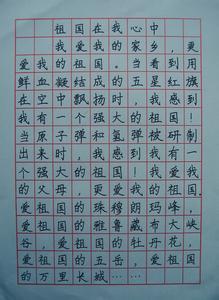 祖国在我心中
我爱我的家乡，更
爱我的祖国。当看到用
鲜血凝结成的五星红旗
在空中飘扬时，我感到
我有一个强大的祖国！
当原子弹和氢弹被研制
出来时，我感到我有一
个强大的祖国！我爱我
的父母，更爱我的祖国，
爱祖国的珠穆朗玛峰，
爱祖国的雅鲁藏布大峡
谷，爱祖国的牡丹花，
爱祖国的五岳，爱祖国
的万里长城……